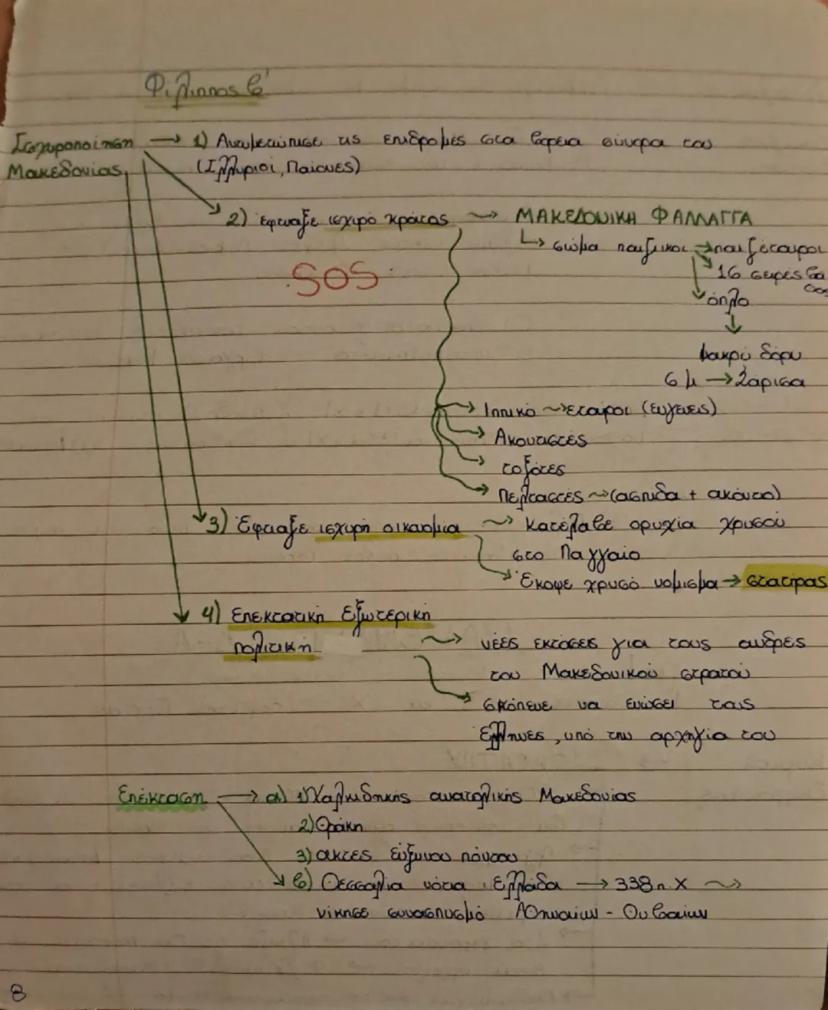 Φιλιππος β'
Ισχυροποίηση → 1) Αντιμετώπισε τις επιδρομές στα βόρεια σύνορα του
Μακεδονίας (Ιλλυριοί, Παίονες)
2) Έφτιαξε ισχυρό κράτος → ΜΑΚΕΔΟΝΙΚΗ ΦΑΛΛΑΓΓΑ
↳ σώμα πεζικοι → πεζεταιροι
SOS
16 σειρές
όπλο
μακρύ δόρυ
6 μ → Σάρισα
Ιππικό → εταίροι (ευγενείς)
Ακοντιστές
τοξότες
Πελταστές → (ασπίδα + ακόντιο)
3) Έφτιαξε ισχυρή οικονομια → Κατέλαβε ορυχία χρυσού
στο Παγγαίο
Έκοψε χρυσό νόμισμα → στατηρας
4) Επεκτατική Εξωτερική
πολιτική → νέες εκτάσεις για τους άνδρες
του Μακεδονικού στρατού
σκόπευε να ενώσει τους
Έλληνες, υπό την αρχηγία του
Επέκταση → α) 1) Χαλκιδικής ανατολικής Μακεδονίας
2) Θράκη
3) ακτές εύξεινου πόντου
β) Θεσσαλία νότια Ελλάδα → 338 π.Χ →
νίκησε συνασπισμό Αθηναίων - Θηβαίων
8